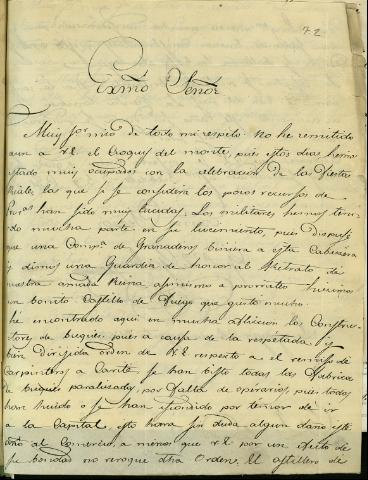 72
Exmo Señor
Muy Sor mio de todo mi respeto. No he remitido
aun a VE. el Croquis del monte, pues estos dias hemos
estado muy ocupados con la celebracion de las Fiestas
Reales, las que si se considera los pocos recursos de
han sido muy lucidas. Los militares hemos teni
do mucha parte en su lucimiento, pues dispuse
que una Compa. de Granaderos viniera a esta Cabecera
y dimos una Guardia de honor al Retrato de
nuestra amada Reina asimismo a prorrateo hicimos
un bonito Castillo de Fuego que gustó mucho.
He encontrado aqui en mucha afliccion los Construc
tores de buques, pues a causa de la respetada y
bien dirijida orden de VE respecto a el remiso de
Carpinteros a Cavite se han visto todas las Fabricas
de buques paralizadas, por falta de operarios, pues todos
han huido o se han escondido por temor de ir
a la Capital, esto hará sin duda algun daño este
año al Comercio, a menos que VE por un efecto de
su bondad no revoque dha Orden. El astillero de